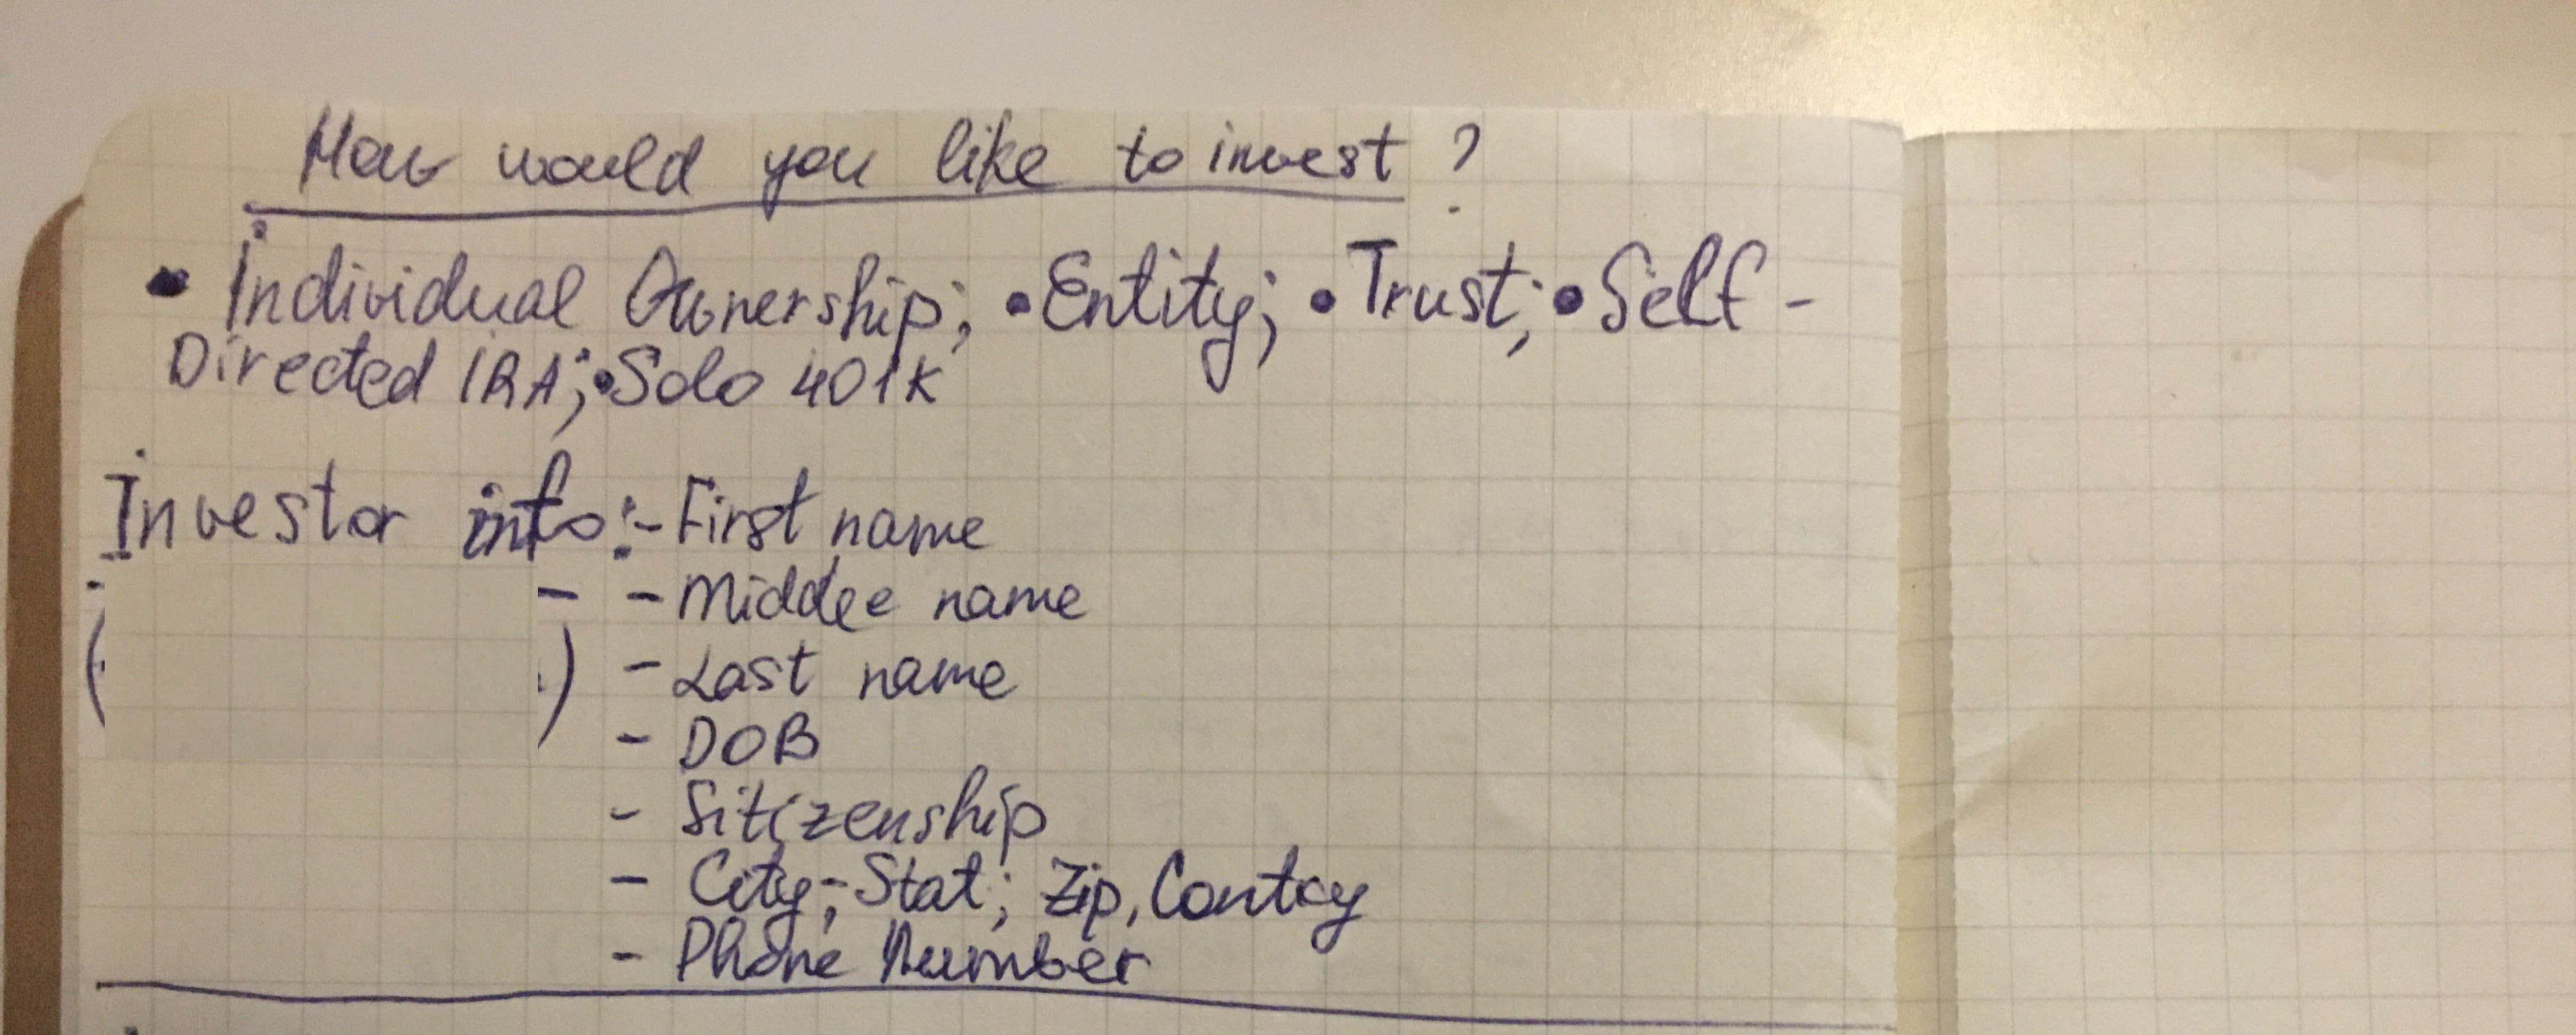 How would you like to invest?
• Individual Ownership; • Entity; • Trust; • Self-
Directed IRA; • Solo 401k
Investor info: - First name
- Middle name
- Last name
- DOB
- Sitizenship
- City; Stat; Zip, Contry
- Phone Number